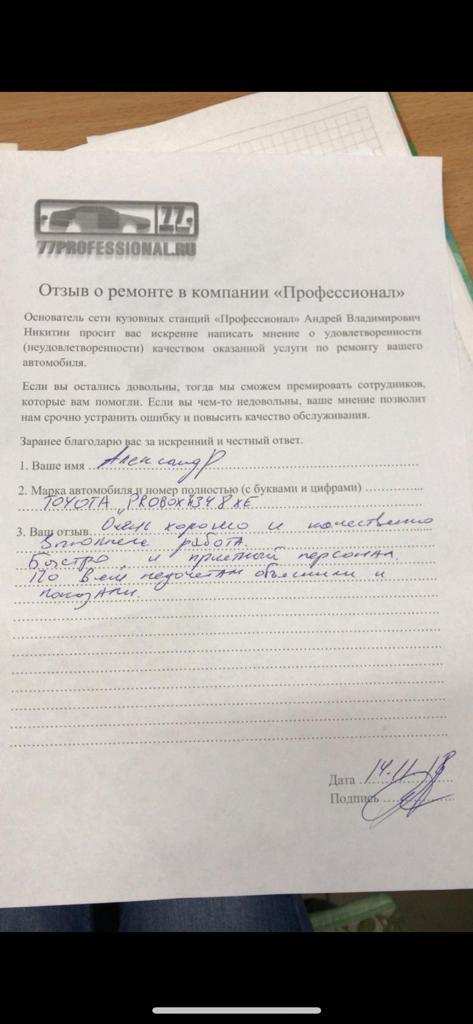 77
77PROFESSIONAL.RU
Отзыв о ремонте в компании «Профессионал»
Основатель сети кузовных станций «Профессионал» Андрей Владимирович
Никитин просит вас искренне написать мнение о удовлетворенности
(неудовлетворенности) качеством оказанной услуги по ремонту вашего
автомобиля.
Если вы остались довольны, тогда мы сможем премировать сотрудников,
которые вам помогли. Если вы чем-то недовольны, ваше мнение позволит
нам срочно устранить ошибку и повысить качество обслуживания.
Заранее благодарю вас за искренний и честный ответ.
1. Ваше имя Александр
2. Марка автомобиля и номер полностью (с буквами и цифрами)
TOYOTA PROBOX
3. Ваш отзыв Очень хорошо и качественно
работа.
Быстро, и приятный персонал.
По всем недочетам объяснили и
показали
Дата 14.11.18
Подпись